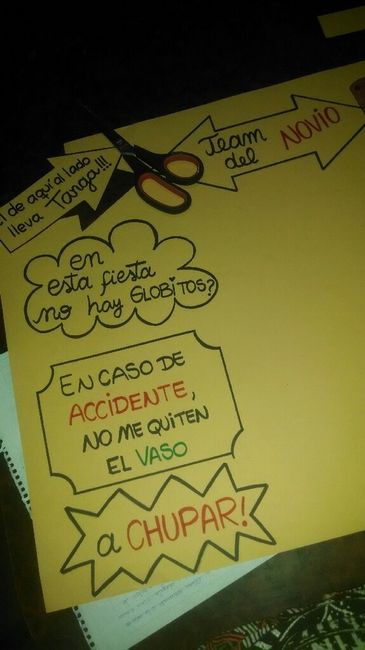 Team
del NOVIO
El de aquí al lado
lleva Tanga!!!
en
esta fiesta
no hay GLOBITOS?
EN CASO DE
ACCIDENTE,
NO ME QUITEN
EL VASO
a CHUPAR!